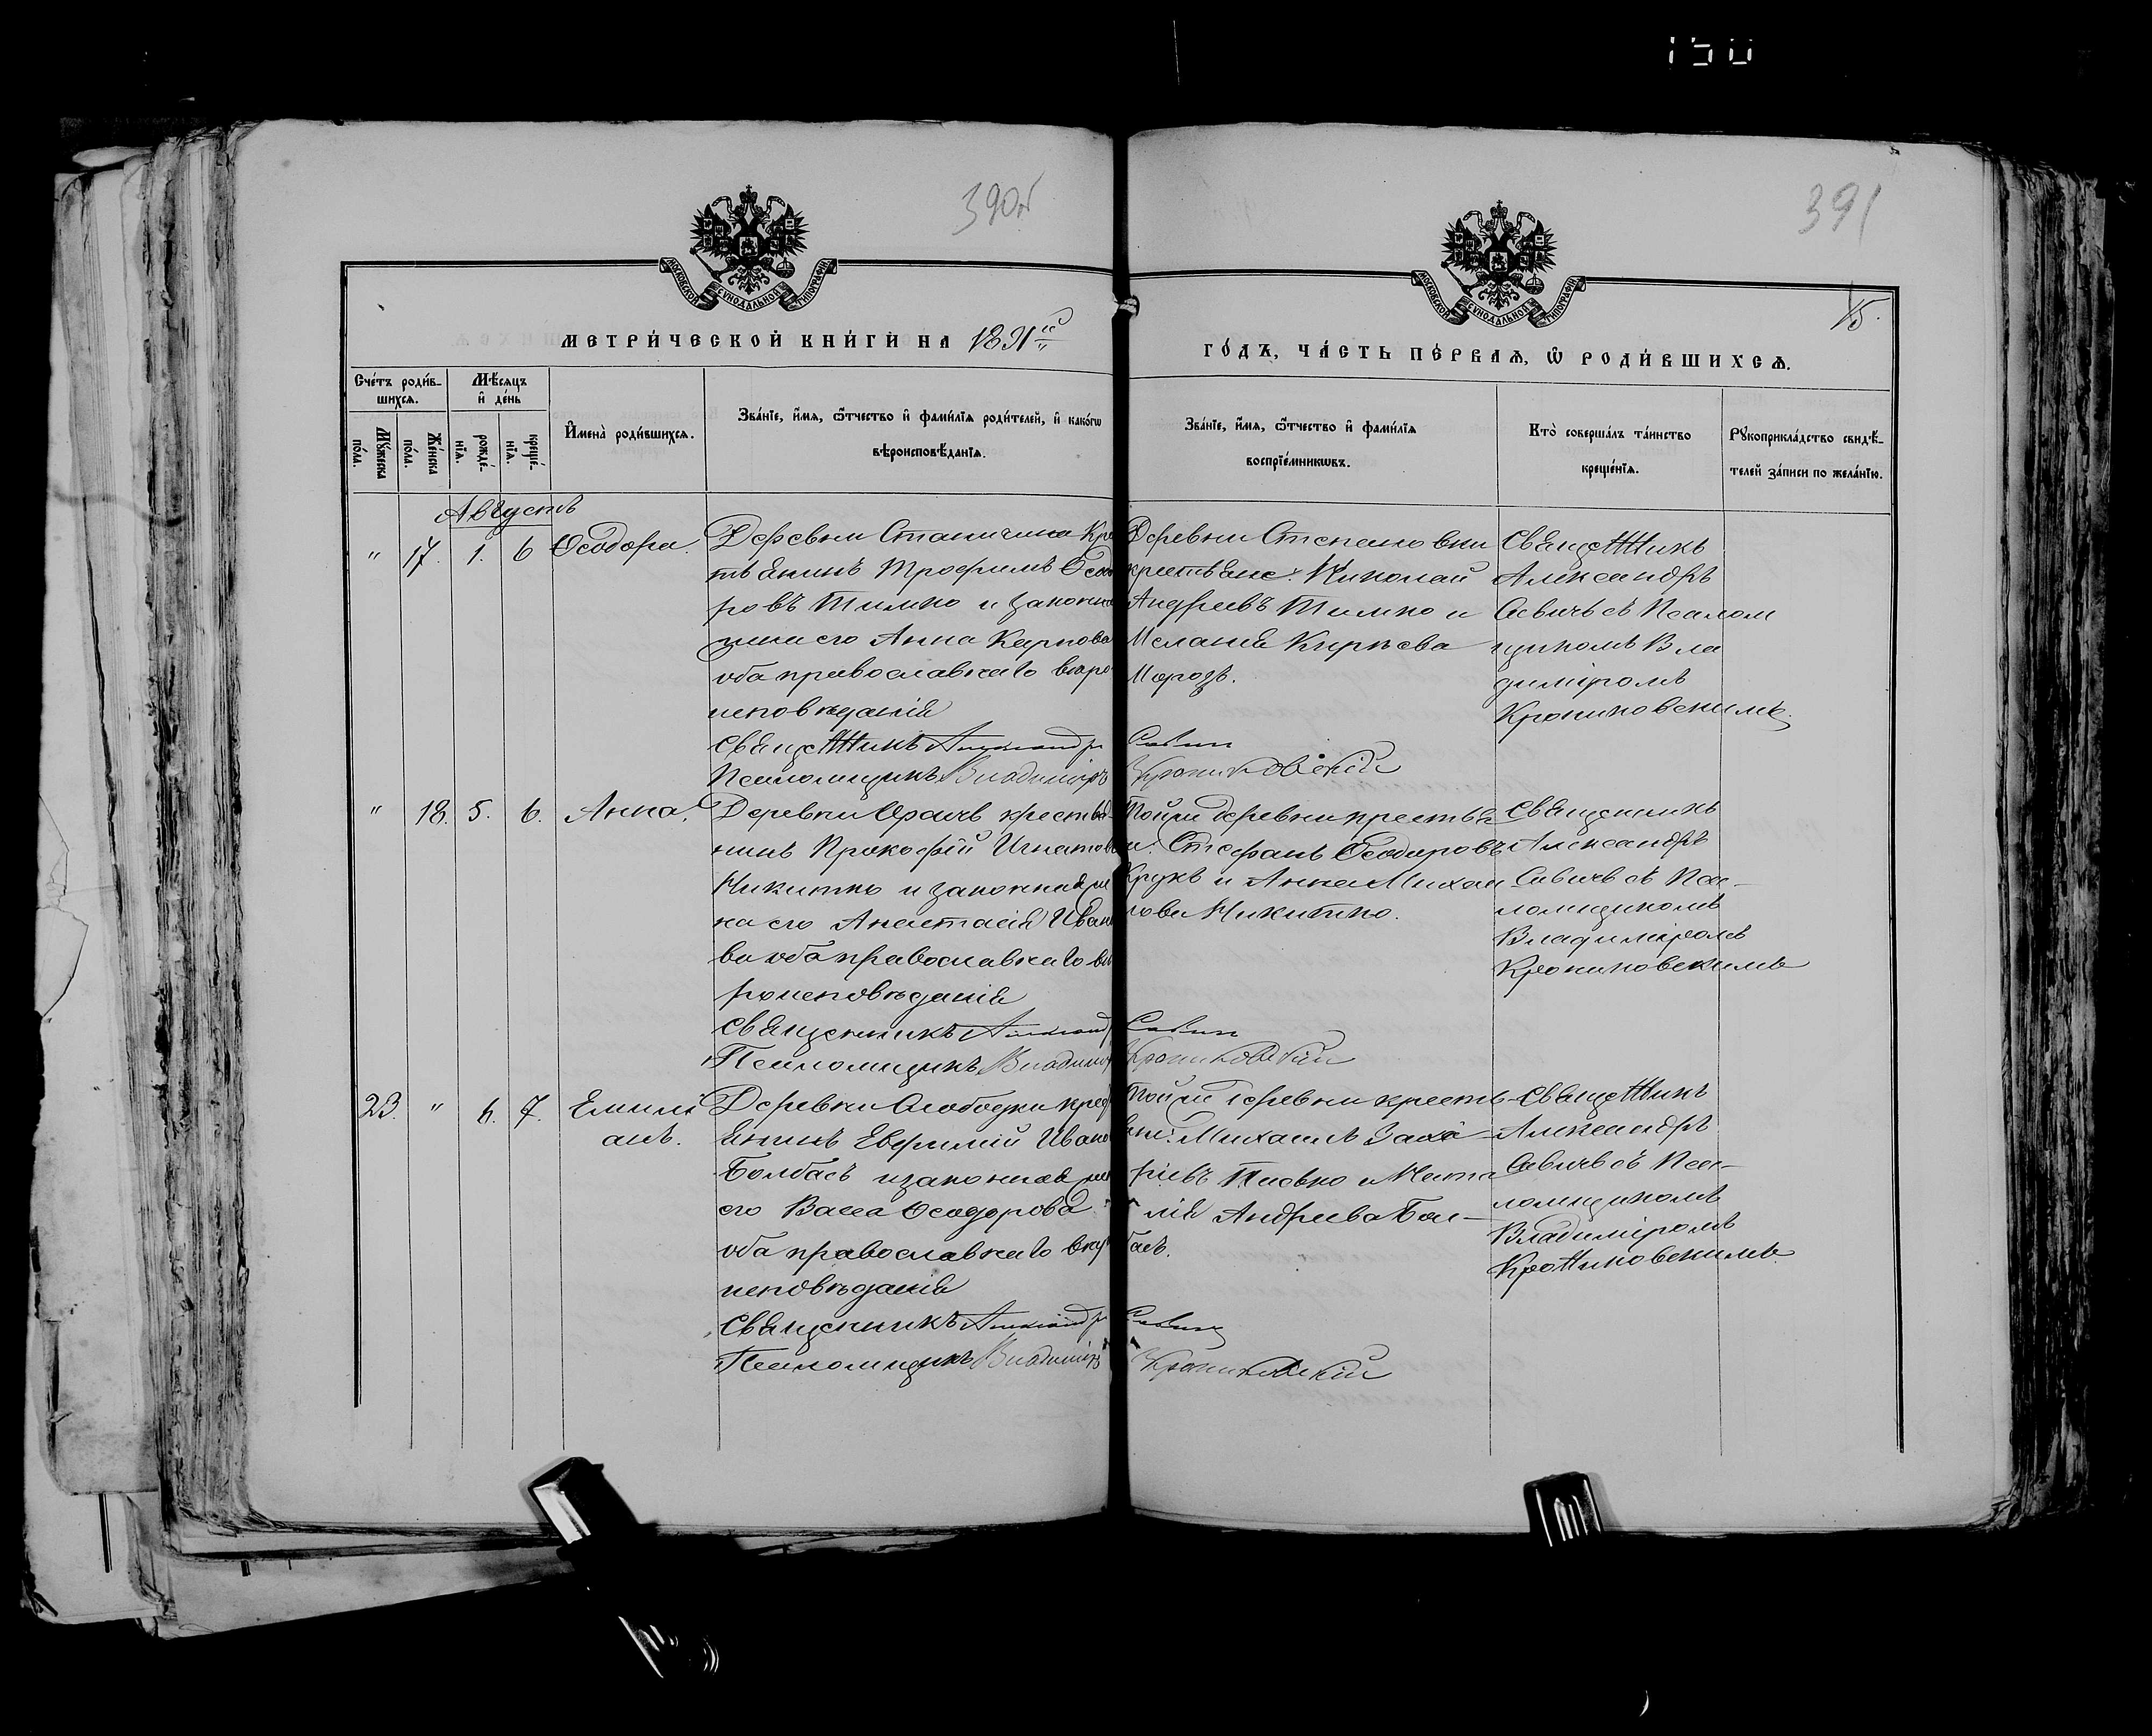 150
390об
391
15.
МОСКОВСКОЙ СѴНОДАЛЬНОЙ ТИПОГРАФІИ
МОСКОВСКОЙ СѴНОДАЛЬНОЙ ТИПОГРАФІИ
МЕТРИ́ЧЕСКОЙ КНИ́ГИ НА 1891й
ГО́ДЪ, ЧА́СТЬ ПЕ́РВАѦ, Ѡ РОДИ́ВШИХСѦ.
Счетъ роди́в-
шихсѧ.
Мꙋ́жеска
по́ла.
Же́нска
по́ла.
Мѣ́сѧцъ
и де́нь
рожде́-
нїѧ.
креще́-
нїѧ.
Имена̀ роди́вшихсѧ.
Зва́нїе, и́мѧ, ѻ́тчество и фами́лїѧ роди́телей, и како́гѡ
вѣроисповѣ́данїѧ.
Зва́нїе, и́мѧ, ѻ́тчество и фами́лїѧ
воспрїе́мникѡвъ.
Кто̀ соверша́лъ та́инство
креще́нїѧ.
Рꙋкоприкла́дство свидѣ́-
телей за́писи по жела́нїю.
Августъ
" 17. 1. 6 Ѳеодора.
Деревни Станичина Кре
тьянинъ Трофимъ Ѳеодо
ровъ Тимко и законна
жена его Анна Карпова
оба православнаго вѣро
исповѣданія
Священникъ Александръ Савичъ
Псаломщикъ Владиміръ Крониковскій
Деревни Степановки
крестьяне: Николай
Андреевъ Тимко и
Меланія Кириева
Морозъ.
Священникъ
Александръ
Савичъ съ Псалом
щикомъ Вла
диміромъ
Крониковскимъ.
" 18. 5. 6. Анна.
Деревни крестья-
нинъ Прокофій Игнатов
Никитко и законная же
на его Анастасія Ивано
ва оба православнаго вѣ
роисповѣданія
Священникъ Александръ Савичъ
Псаломщикъ Владиміръ Крониковскій
Той же деревни крестья
не: Стефанъ Ѳеодоровъ
Крукъ и Анна Михаи
лова Никитко.
Священникъ
Александръ
Савичъ съ Пса-
ломщикомъ
Владиміромъ
Крониковскимъ
23. " 6. 7. Емилі
анъ.
Деревни Слободки крес
янинъ Евфимій Ивано
Болбасъ и законная жен
его Васса Ѳеодорова
оба православнаго вѣр
исповѣданія
Священникъ Александръ Савичъ
Псаломщикъ Владиміръ Крониковскій
Той же деревни кресть-
яне: Михаилъ Заха-
ріевъ Пивко и Ната
лія Андреева Бол-
басъ.
Священникъ
Александръ
Савичъ съ Пса-
ломщикомъ
Владиміромъ
Крониковскимъ.